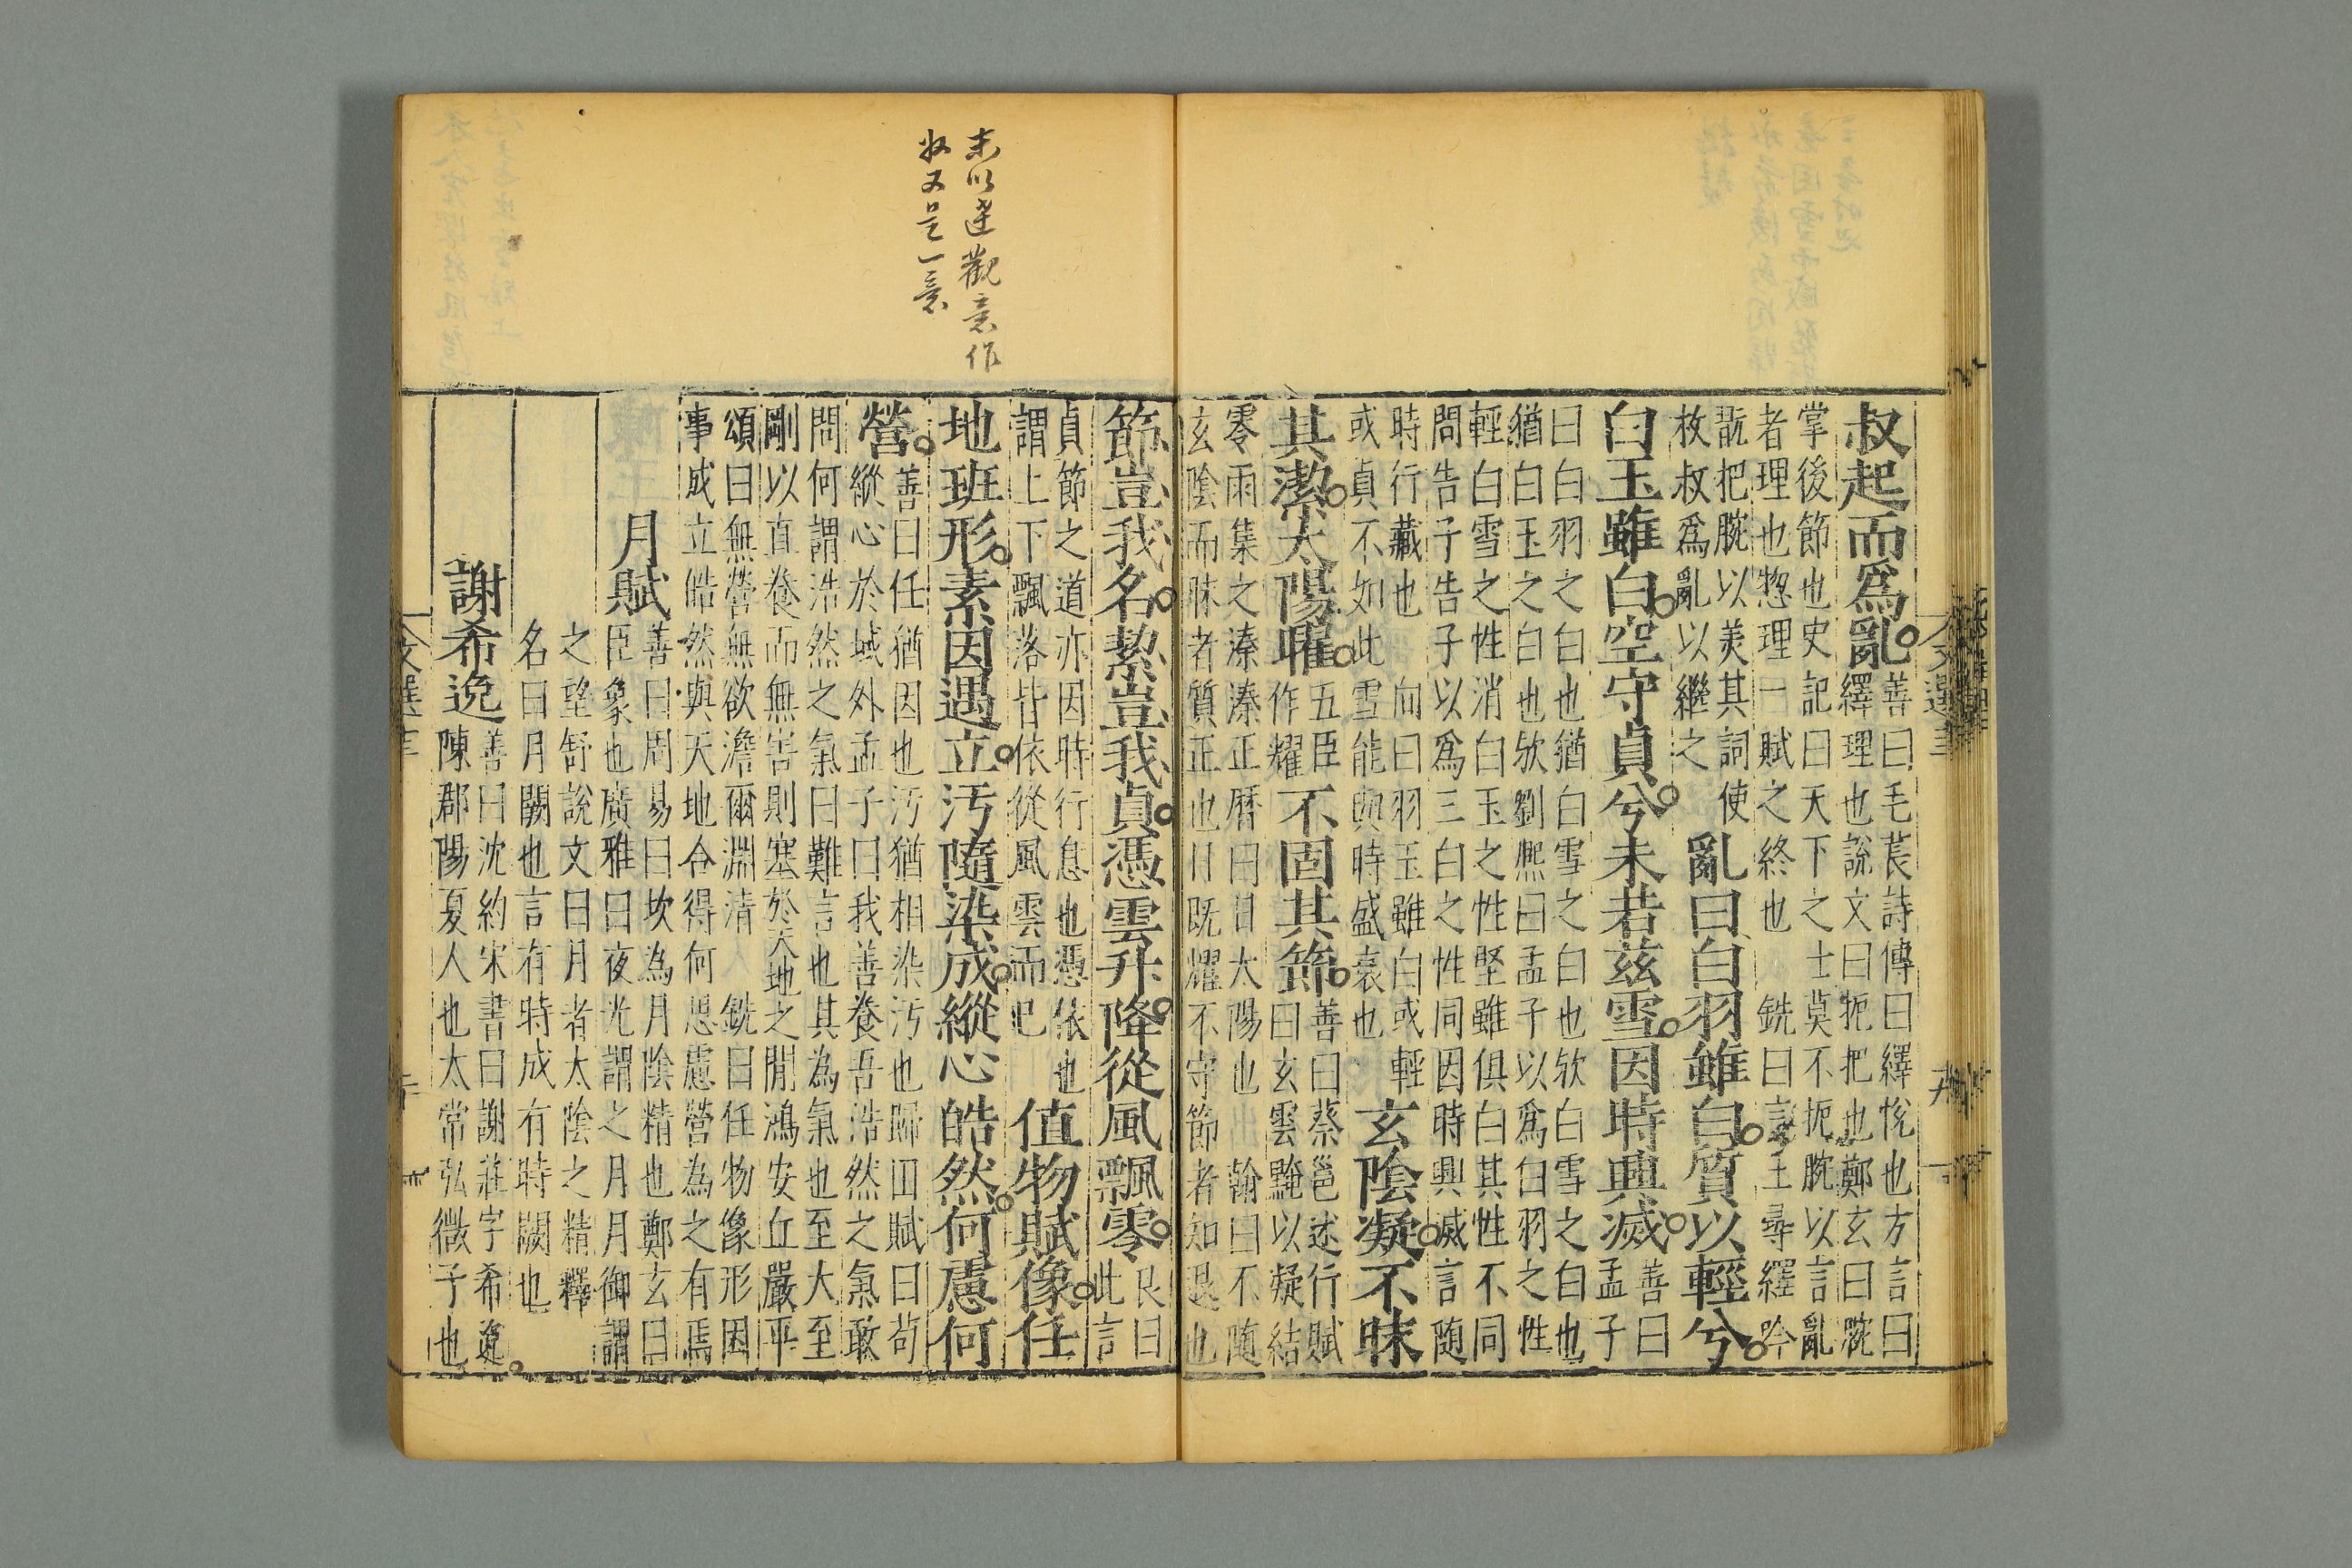 叔起而爲亂善曰毛萇詩傳曰繹悅也方言曰
繹理也說文曰扼把也鄭玄曰腕
掌後節也史記曰天下之士莫不扼腕以言亂
者理也揔理一賦之終也 銑曰言王尋繹吟
翫把腕以美其詞使
枚叔爲亂以繼之
亂曰白羽雖白質以輕兮
白玉雖白空守貞兮未若茲雪因時興滅善曰
孟子
曰白羽之白也猶白雪之白也欤白雪之白也
猶白玉之白也欤劉熙曰孟子以爲白羽之性
輕白雪之性消白玉之性堅雖俱白其性不同
問告子告子以爲三白之性同因時興滅言隨
時行藏也 向曰羽玉雖白或輕
或貞不如此雪能與時盛衰也
玄陰凝不昧
其潔太陽曜五臣
作耀不固其節善曰蔡邕述行賦
曰玄雲黤以凝結
零雨集之溱溱正曆曰日太陽也 翰曰不隨
玄陰而昧者質正也日既耀不守節者知退也
節豈我名絜豈我貞憑雲升降從風飄零良曰
此言
貞節之道亦因時行息也憑依也
謂上下飄落皆依從風雲而已
值物賦像任
地班形素因遇立汚隨染成縱心皓然何慮何
營善曰任猶因也汚猶相染汚也歸田賦曰苟
縱心於域外孟子曰我善養吾浩然之氣敢
問何謂浩然之氣曰難言也其為氣也至大至
剛以直養而無害則塞於天地之間鴻安丘嚴平
頌曰無營無欲澹爾淵清 銑曰任物像形因
事成立皓然與天地合得何思慮營為之有焉
月賦善曰周易曰坎為月陰精也鄭玄曰
臣象也廣雅曰夜光謂之月月御謂
之望舒說文曰月者太陰之精釋
名曰月闕也言有時成有時闕也
謝希逸善曰沈約宋書曰謝莊字希逸
陳郡陽夏人也太常弘微子也
末以達觀意作
收又是一意